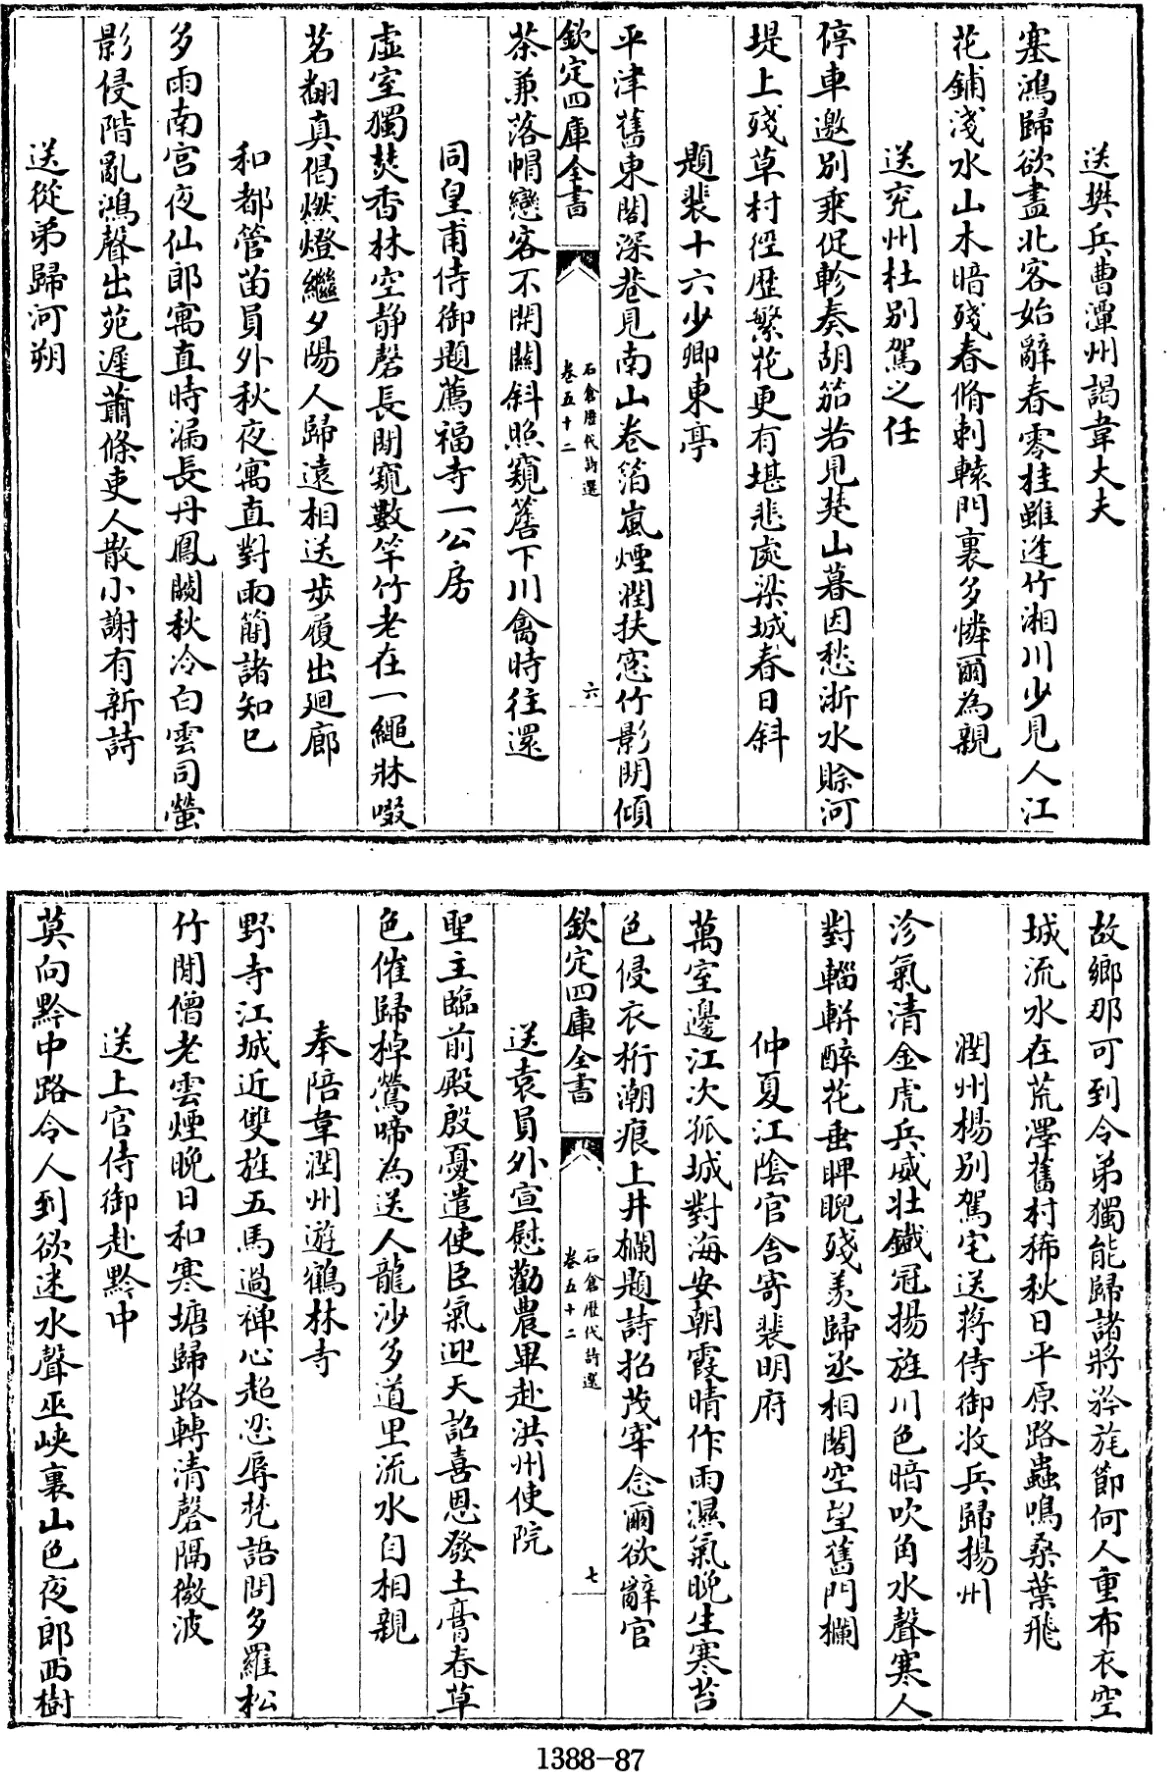 送樊兵曹潭州謁韋大夫
塞鴻歸欲盡北客始辭春零桂雖逢竹湘川少見人江
花鋪淺水山木暗殘春脩刺轅門裏多憐爾為親
送兖州杜别駕之任
停車邀别乘促軫奏胡笳若見楚山暮因愁浙水賖河
堤上殘草村徑歴繁花更有堪悲處梁城春日斜
題裴十六少卿東亭
平津舊東閣深巷見南山卷箔嵐煙潤扶窓竹影閒傾
欽定四庫全書
石倉歴代詩選
卷五十二
六
茶兼落帽戀客不開關斜照窺簷下川禽時往還
同皇甫侍御題薦福寺一公房
虚室獨焚香林空静磬長閒窺數竿竹老在一繩牀啜
茗翻真偈燃燈繼夕陽人歸遠相送步履出廻廊
和都管苗員外秋夜寓直對雨簡諸知已
多雨南宫夜仙郎寓直時漏長丹鳳闕秋冷白雲司螢
影侵階亂鴻聲出苑遲蕭條吏人散小謝有新詩
送從弟歸河朔
故鄉那可到令弟獨能歸諸將矜旄節何人重布衣空
城流水在荒澤舊村稀秋日平原路蟲鳴桑葉飛
潤州楊别駕宅送蔣侍御收兵歸揚州
沴氣清金虎兵威壯鐵冠揚旌川色暗吹角水聲寒人
對輜軿醉花垂睥睨殘羨歸丞相閣空望舊門欄
仲夏江陰官舍寄裴明府
萬室邊江次孤城對海安朝霞晴作雨濕氣晚生寒苔
色侵衣桁潮痕上井欄題詩招茂宰念爾欲辭官
欽定四庫全書
石倉歴代詩選
卷五十二
七
送袁員外宣慰勸農畢赴洪州使院
聖主臨前殿殷憂遣使臣氣迎天詔喜恩發土膏春草
色催歸棹鶯啼為送人龍沙多道里流水自相親
奉陪韋潤州遊鶴林寺
野寺江城近雙旌五馬過禪心超忍辱梵語問多羅松
竹閒僧老雲煙晚日和寒塘歸路轉清磬隔微波
送上官侍御赴黔中
莫向黔中路令人到欲迷水聲巫峽裏山色夜郎西樹
1388-87